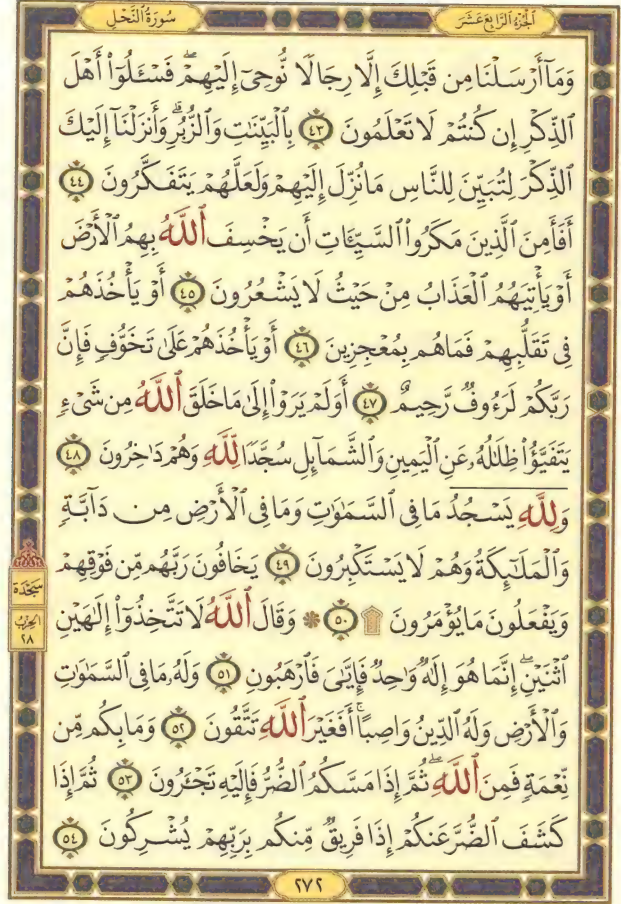 سُورَةُ النَّحْلِ
الْجُزْءُ الرَّابِعَ عَشَرَ
وَمَآ أَرْسَلْنَا مِن قَبْلِكَ إِلَّا رِجَالًا نُّوحِىٓ إِلَيْهِمْ ۖ فَسْـَٔلُوٓا۟ أَهْلَ
ٱلذِّكْرِ إِن كُنتُمْ لَا تَعْلَمُونَ ٤٣ بِٱلْبَيِّنَـٰتِ وَٱلزُّبُرِ ۗ وَأَنزَلْنَآ إِلَيْكَ
ٱلذِّكْرَ لِتُبَيِّنَ لِلنَّاسِ مَا نُزِّلَ إِلَيْهِمْ وَلَعَلَّهُمْ يَتَفَكَّرُونَ ٤٤
أَفَأَمِنَ ٱلَّذِينَ مَكَرُوا۟ ٱلسَّيِّـَٔاتِ أَن يَخْسِفَ ٱللَّهُ بِهِمُ ٱلْأَرْضَ
أَوْ يَأْتِيَهُمُ ٱلْعَذَابُ مِنْ حَيْثُ لَا يَشْعُرُونَ ٤٥ أَوْ يَأْخُذَهُمْ
فِى تَقَلُّبِهِمْ فَمَا هُم بِمُعْجِزِينَ ٤٦ أَوْ يَأْخُذَهُمْ عَلَىٰ تَخَوُّفٍ فَإِنَّ
رَبَّكُمْ لَرَءُوفٌ رَّحِيمٌ ٤٧ أَوَلَمْ يَرَوْا۟ إِلَىٰ مَا خَلَقَ ٱللَّهُ مِن شَىْءٍ
يَتَفَيَّؤُا۟ ظِلَـٰلُهُۥ عَنِ ٱلْيَمِينِ وَٱلشَّمَآئِلِ سُجَّدًا لِّلَّهِ وَهُمْ دَٰخِرُونَ ٤٨
وَلِلَّهِ يَسْجُدُ مَا فِى ٱلسَّمَـٰوَٰتِ وَمَا فِى ٱلْأَرْضِ مِن دَآبَّةٍ
وَٱلْمَلَـٰٓئِكَةُ وَهُمْ لَا يَسْتَكْبِرُونَ ٤٩ يَخَافُونَ رَبَّهُم مِّن فَوْقِهِمْ
وَيَفْعَلُونَ مَا يُؤْمَرُونَ ۩ ٥٠ ۞ وَقَالَ ٱللَّهُ لَا تَتَّخِذُوٓا۟ إِلَـٰهَيْنِ
ٱثْنَيْنِ ۖ إِنَّمَا هُوَ إِلَـٰهٌ وَٰحِدٌ فَإِيَّـٰىَ فَٱرْهَبُونِ ٥١ وَلَهُۥ مَا فِى ٱلسَّمَـٰوَٰتِ
وَٱلْأَرْضِ وَلَهُ ٱلدِّينُ وَاصِبًا ۚ أَفَغَيْرَ ٱللَّهِ تَتَّقُونَ ٥٢ وَمَا بِكُم مِّن
نِّعْمَةٍ فَمِنَ ٱللَّهِ ۖ ثُمَّ إِذَا مَسَّكُمُ ٱلضُّرُّ فَإِلَيْهِ تَجْـَٔرُونَ ٥٣ ثُمَّ إِذَا
كَشَفَ ٱلضُّرَّ عَنكُمْ إِذَا فَرِيقٌ مِّنكُم بِرَبِّهِمْ يُشْرِكُونَ ٥٤
سَجْدَة
الحِزْبُ
٢٨
٢٧٢